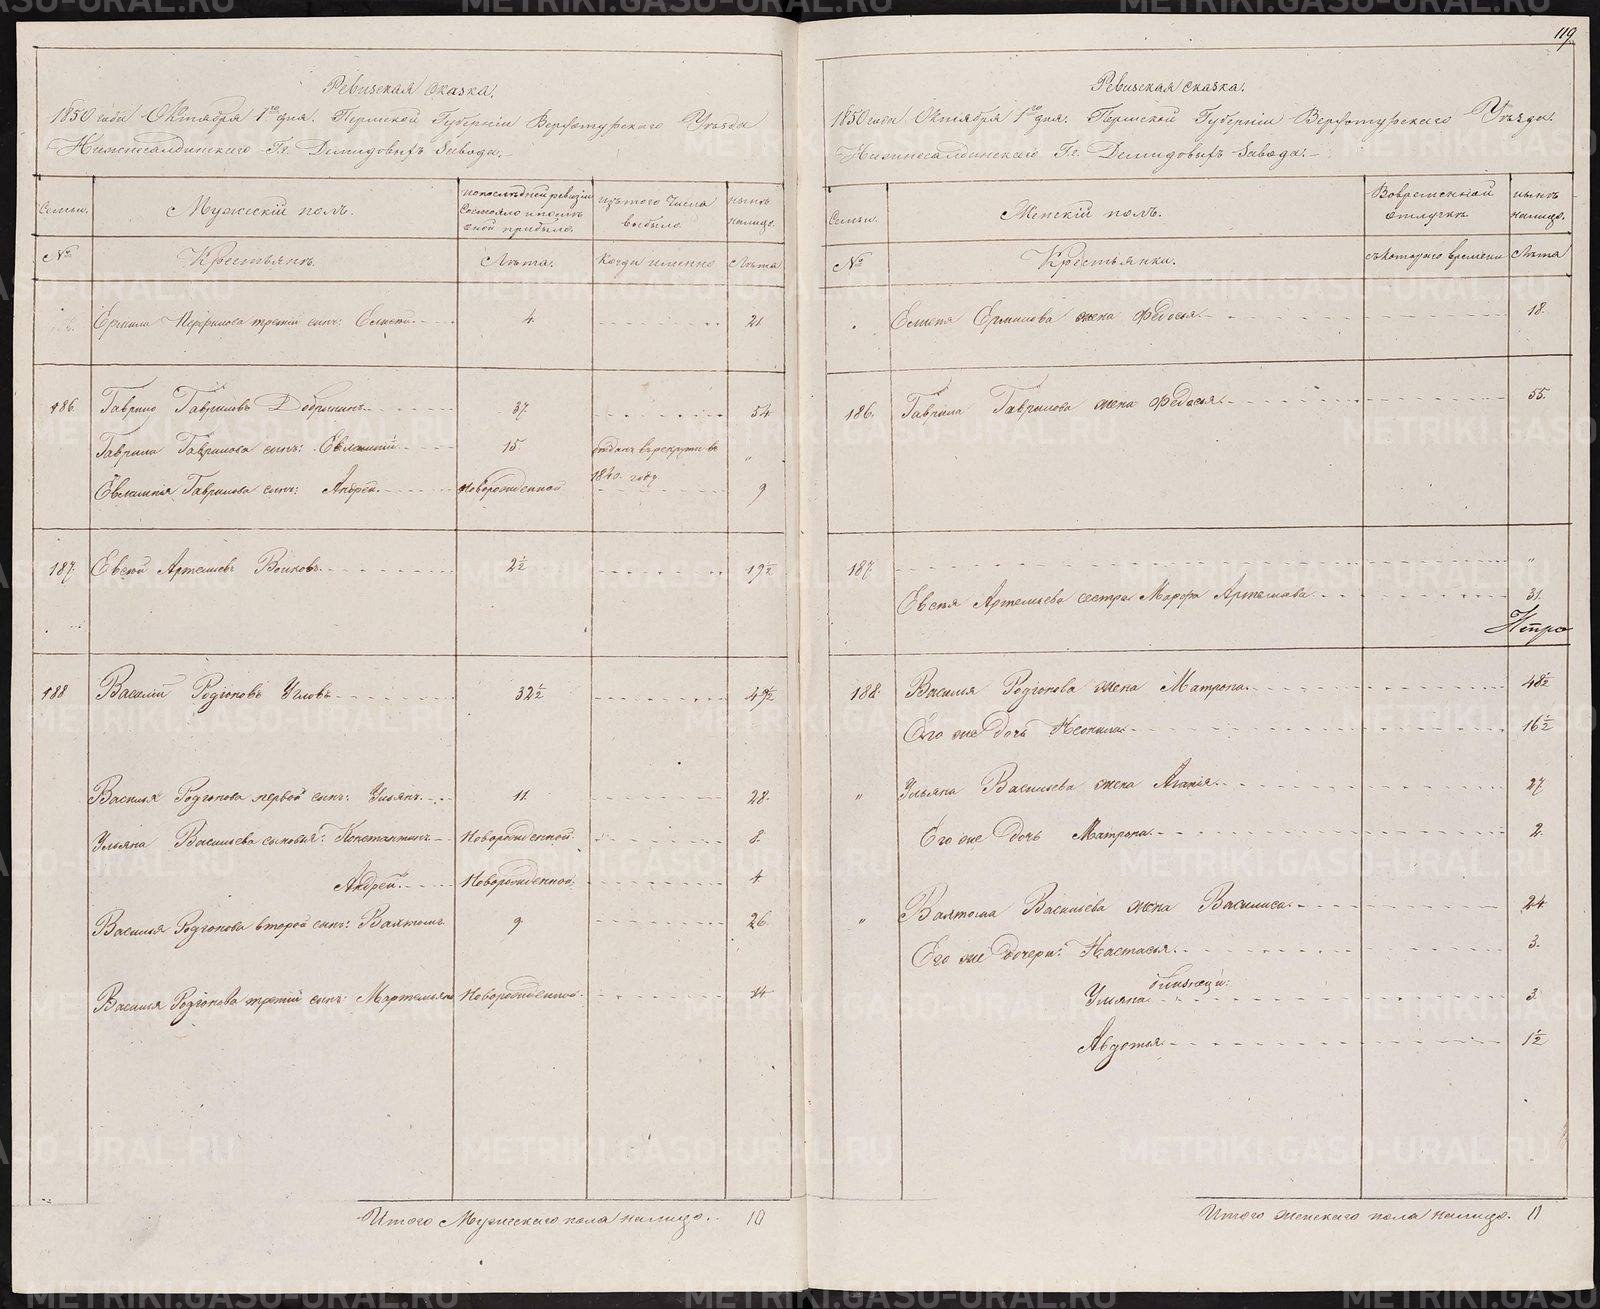 119.
Ревизская сказка.
1850 года Октября 1го дня. Пермской Губерніи Верхотурскаго Уѣзда
Нижнесалдинскаго Гг. Демидовыхъ Завода.
Семьи. Мужескій полъ. по послѣдней ревизіи состояло и послѣ оной прибыло. изъ того числа выбыло нынѣ налицо.
№ Крестьянѣ. Лѣта. Когда именно Лѣта
Ермила Перфилова третій сынъ: Елисей 4. 21
186. Гаврило Гавриловъ Добрынинъ 37. 54
Гаврила Гаврилова сынъ: Евлампій 15. отданъ въ рекруты въ 1840. году "
Евлампія Гаврилова сынъ: Андрей Новорожденной 9
187. Евсѣй Артемьевъ Волковъ 2½ 19½
188 Василій Родіоновъ Угловъ 32½ 49½
Василья Родіонова первой сынъ: Ульянъ 11. 28.
Ульяна Васильева сыновья: Константинъ Новорожденной. 8.
Андрей Новорожденной. 4
Василья Родіонова второй сынъ: 9 26.
Василья Родіонова третій сынъ: Мартемьянъ Новорожденной. 14
Итого Мужескаго пола налицо. 10
Ревизская сказка.
1850 года Октября 1го дня. Пермской Губерніи Верхотурскаго Уѣзда.
Нижнесалдинскаго Гг. Демидовыхъ Завода.
Семьи. Женскій полъ. Во временной отлучкѣ нынѣ налицо.
№ Крестьянки. съ котораго времени Лѣта
Елисея Ермилова жена Федосья 18.
186. Гаврила Гаврилова жена Федосья 55.
187. "
Евсея Артемьева сестра Марфа Артемьева 31.
188. Василья Родіонова жена Матрона 48½
Его же дочь Неонила 16½
" Ульяна Васильева жена Агафія 27
Его же дочь Матрона 2.
" Васильева жена Василиса 24
Его же дочери: Настасья 3.
близнецы:
Ульяна 3
Авдотья 1½
Итого женскаго пола налицо. 11
METRIKI.GASO-URAL.RU